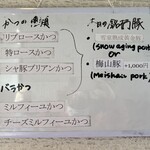 かつの種類
リブロースかつ
特ロースかつ
シャ豚ブリアンかつ
バラかつ
ミルフィーユかつ
チーズミルフィーユかつ
本日の銘柄豚
雪室熟成黄金豚
(snow aging pork)
or
梅山豚 +1,000円
(Meishan pork)